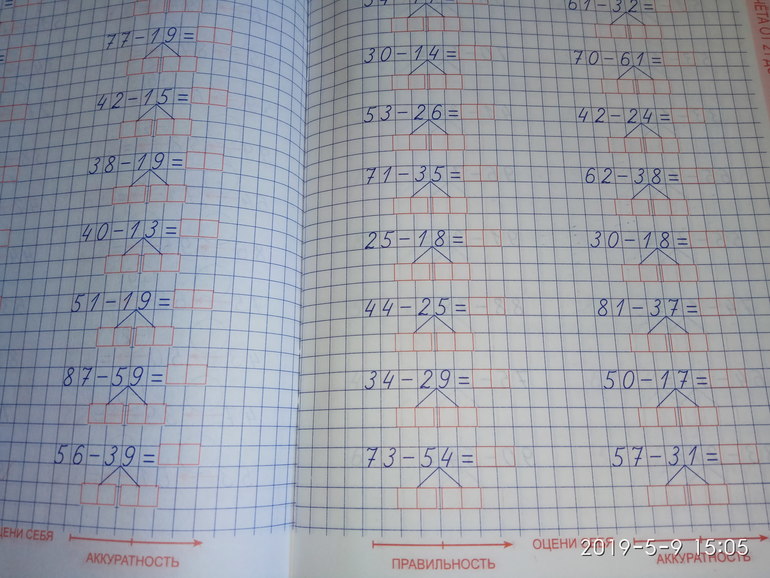 77-19=
42-15=
38-19=
40-13=
51-19=
87-59=
56-39=
ЦЕНИ СЕБЯ
АККУРАТНОСТЬ
30-14=
53-26=
71-35=
25-18=
44-25=
34-29=
73-54=
ПРАВИЛЬНОСТЬ
61-32=
70-61=
42-24=
62-38=
30-18=
81-37=
50-17=
57-31=
ОЦЕНИ СЕБЯ
АККУРАТНОСТЬ
2019-5-9 15:05